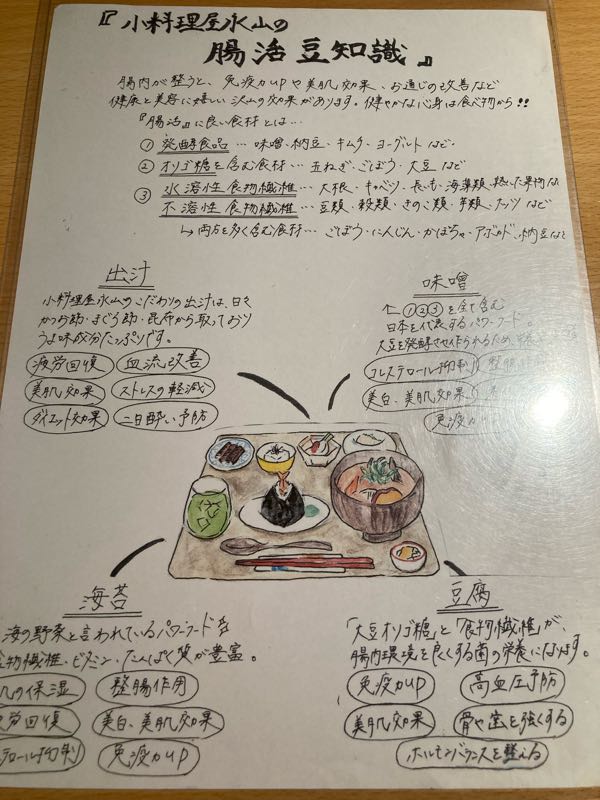 『小料理屋氷山の
腸活豆知識』
腸内が整うと、免疫力upや美肌効果、お通じの改善など
健康と美容に嬉しい沢山の効果があります。健やかな心身は食べ物から!!
『腸活』に良い食材とは…
① 発酵食品 … 味噌・納豆・キムチ・ヨーグルトなど
② オリゴ糖を含む食材 … 玉ねぎ・ごぼう・大豆など
③ 水溶性食物繊維 … 大根・キャベツ・長いも・海藻類・熟した果物など
不溶性食物繊維 … 豆類・穀類・きのこ類・芋類・ナッツなど
↳両方を多く含む食材… ごぼう・にんじん・かぼちゃ・アボカド・納豆など
出汁
小料理屋氷山のこだわりの出汁は、日々
かつお節・まぐろ節・昆布から取っており
うま味成分たっぷりです。
疲労回復 血流改善
美肌効果 ストレスの軽減
ダイエット効果 二日酔い予防
味噌
↖①②③を全て含む
日本を代表するパワーフード。
大豆を発酵させ作られるため
コレステロール抑制 整腸作
美白、美肌効果
免疫力up
海苔
海の野菜と言われているパワーフード
食物繊維・ビタミン・たんぱく質が豊富。
の保湿 整腸作用
労回復 美白、美肌効果
テロール抑制 免疫力up
豆腐
「大豆オリゴ糖」と「食物繊維」が、
腸内環境を良くする菌の栄養になります。
免疫力up 高血圧予防
美肌効果 骨や歯を強くする
ホルモンバランスを整える